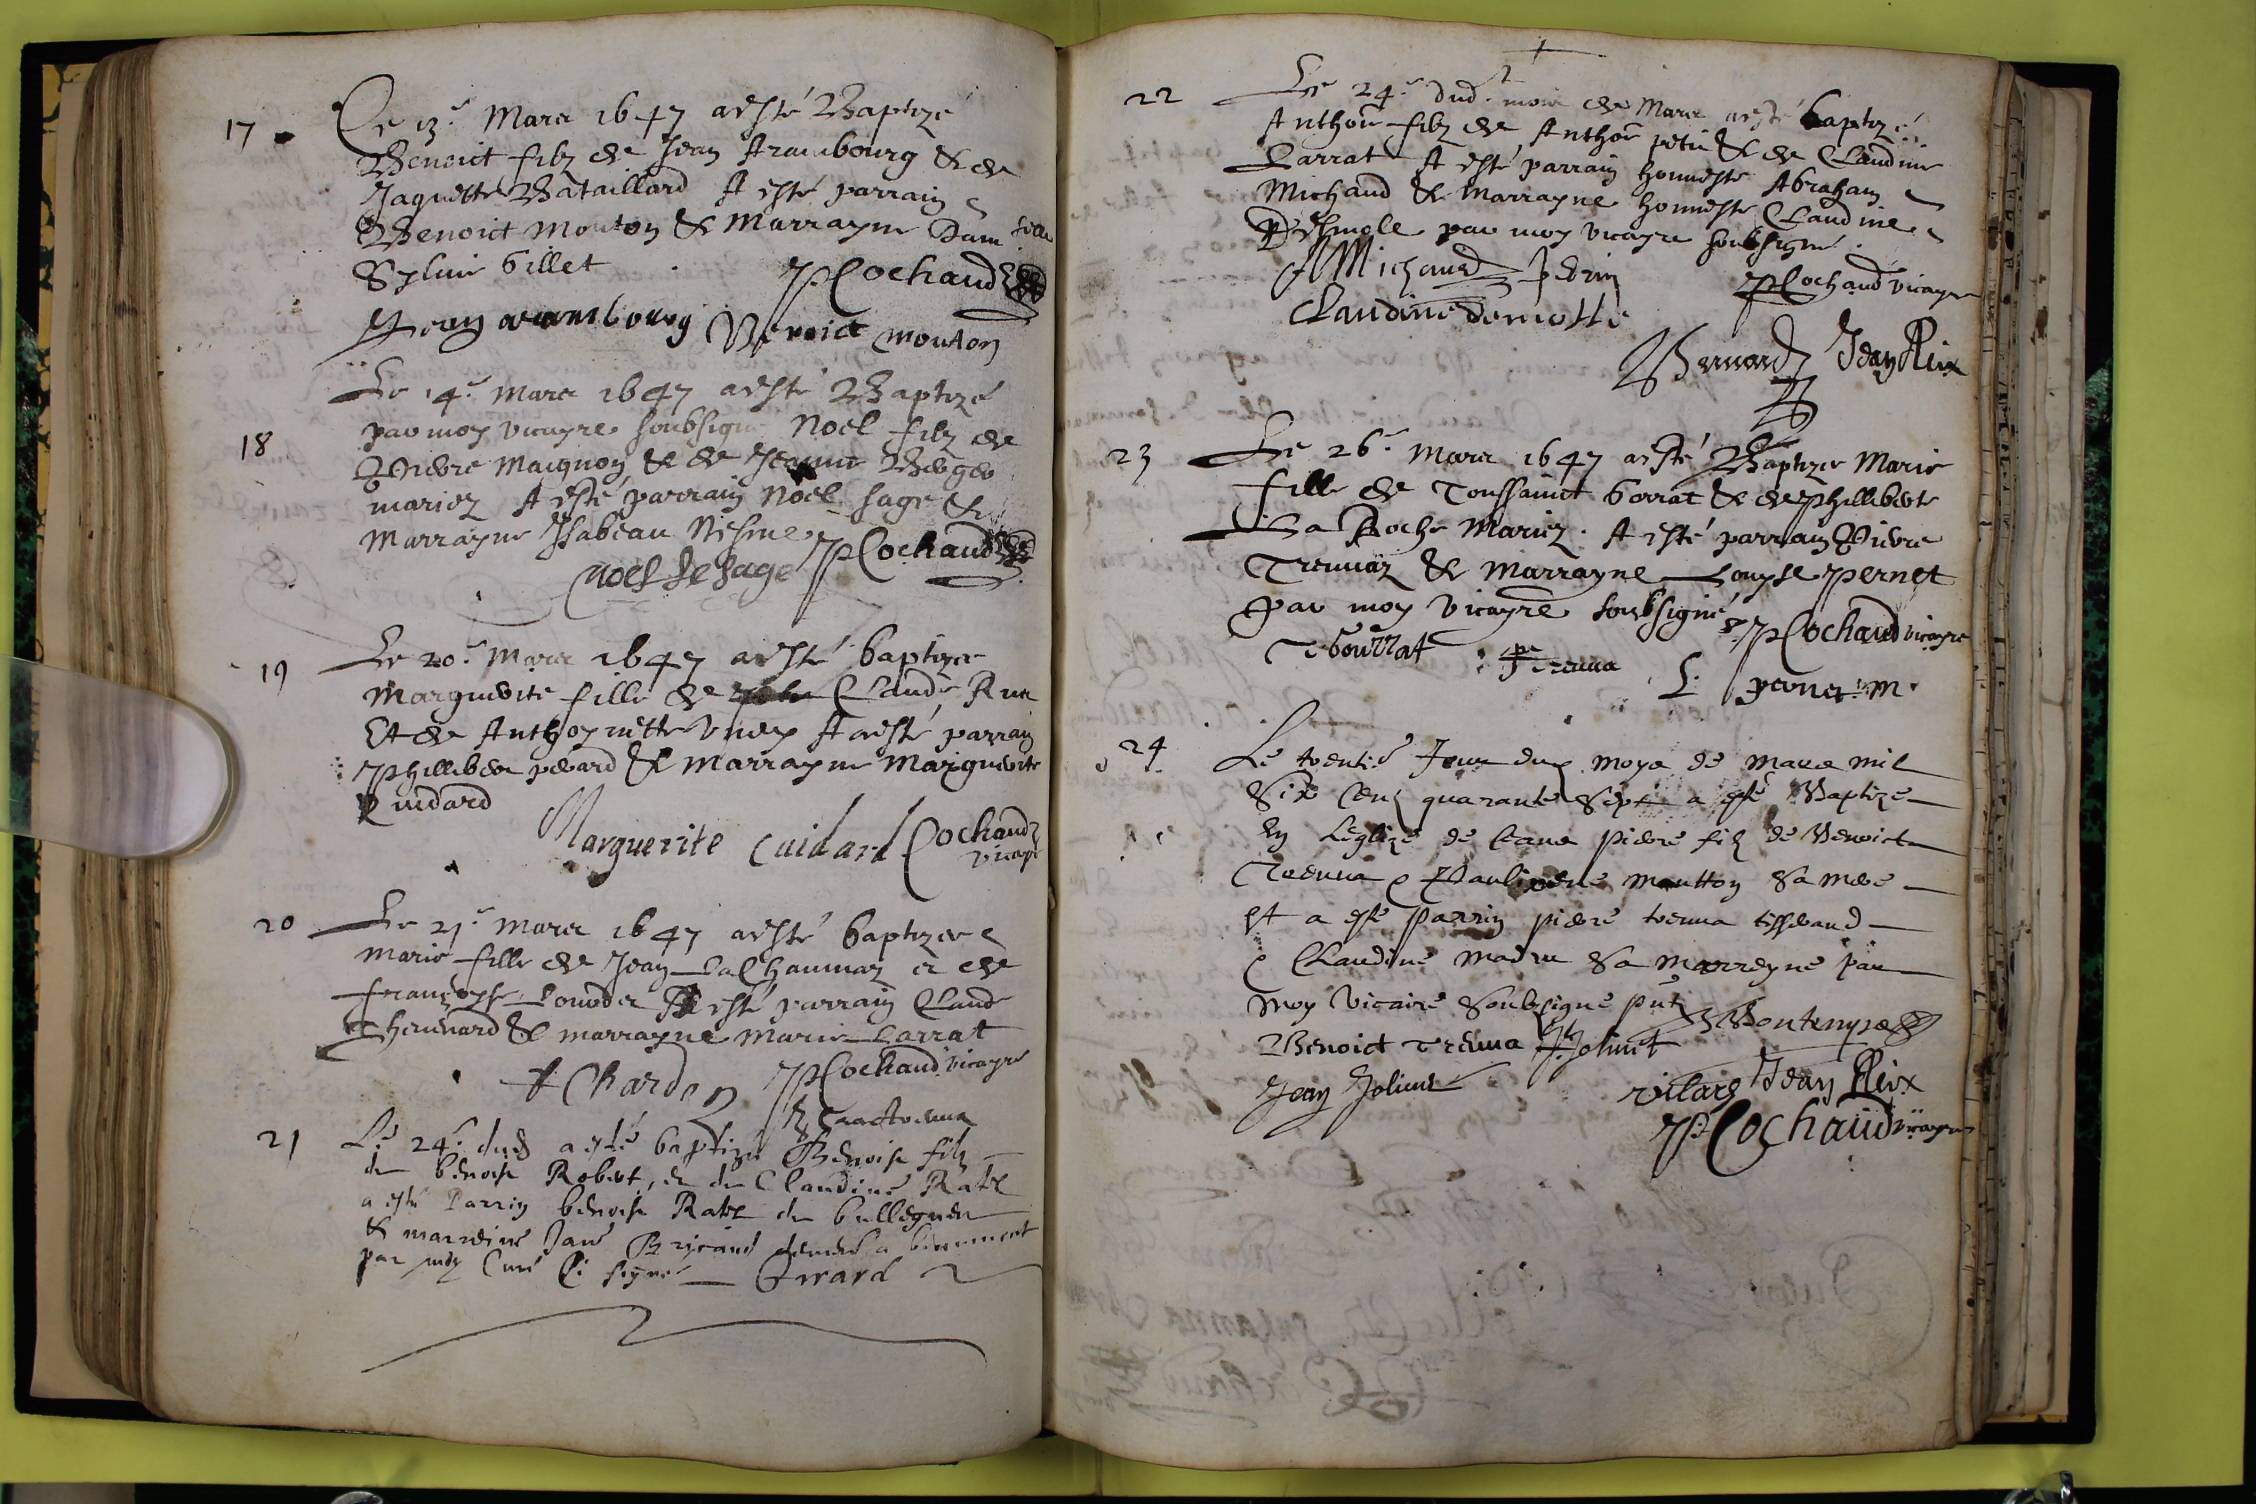 17
Le 13e Mars 1647 a esté Baptizé
Benoict filz de Jean Arambourg & de
Jaquette Bataillard A esté parrain
Benoict Mouton & Marrayne Dam.lle
Sylvie Gillet
JPCochaud
Jean arambourg Benoict mouton
18
Le 14e Mars 1647 a esté Baptizé
par moy vicayre soubsigné Noel filz de
Pierre Maignon & de Jeanne Berger
mariez A esté parrain Noel sage &
Marrayne Isabeau Nesme
JPCochaud
Noel Le Sage
19
Le 20e Mars 1647 a esté baptizee
Marguerite fille de Claude Rux
Et de Anthoynette A esté parrain
Phillibert perard & Marrayne Marguerite
Cuidard
Marguerite Cuidard Cochaud
vicayre
20
Le 21e Mars 1647 a esté baptizee
Marie fille de Jean &
Françoyse A esté parrain Claude
& marrayne Marie Larrat
A Chardon JPCochaud vicayre
21
Le 24e dud a esté baptizé Benoist filz
de benoist Robert, et de Claudine Rater
a esté Parrin benoist Rater de
& marreine Jane Brigaud
par moy Curé Ci signé Girard
22
Le 24e dud. mois de Mars a esté baptizé
Anthoine filz de Anthoine petit & de Claudine
Larrat A esté parrain honneste Abraham
Michaud & Marrayne honneste Claudine
Desmole par moy vicayre soubsigné
AMichaud Petin
JPCochaud vicayre
Claudine demolle
Bernard Jean Rix
23
Le 26e Mars 1647 a esté Baptizee Marie
fille de Toussainct borrat & de Phillibert
La Roche Mariez. A esté parrain Pierre
Trevvaz & Marrayne Louyse Pernet
par moy vicayre soubsigné
JPCochaud vicayre
Tborrat pe Treuua
L. pernet
24
Le trentie Jour du moys de mars mil
Six Cent quarante Sept a esté Baptize
En Leglize de Ceans pierre filz de Benoict
Treuua & moutton sa mere
Et a esté parrin pierre treuua tisserand
& Claudine sa marreyne par
moy vicaire soubsigne
Benoict Treuua Jolinet
Jean Jolinet
Jean Rix
JPCochaud vicayre